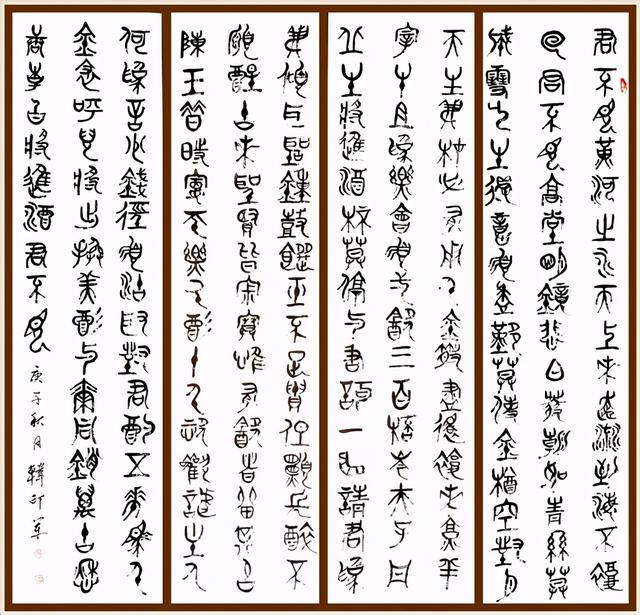 君不見黃河之水天上來奔流到海不復
回君不見高堂明鏡悲白髮朝如青絲莫
成雪人生得意須盡歡莫使金樽空對月
天生我材必有用千金散盡還復來烹羊
宰牛且為樂會須一飲三百杯岑夫子丹
丘生將進酒杯莫停與君歌一曲請君為
我傾耳聽鐘鼓饌玉不足貴但願長醉不
願醒古來聖賢皆寂寞惟有飲者留其名
陳王昔時宴平樂斗酒十千恣歡謔主人
何為言少錢徑須沽取對君酌五花馬千
金裘呼兒將出換美酒與爾同銷萬古愁
李白將進酒君不見
庚子秋月韓印軍